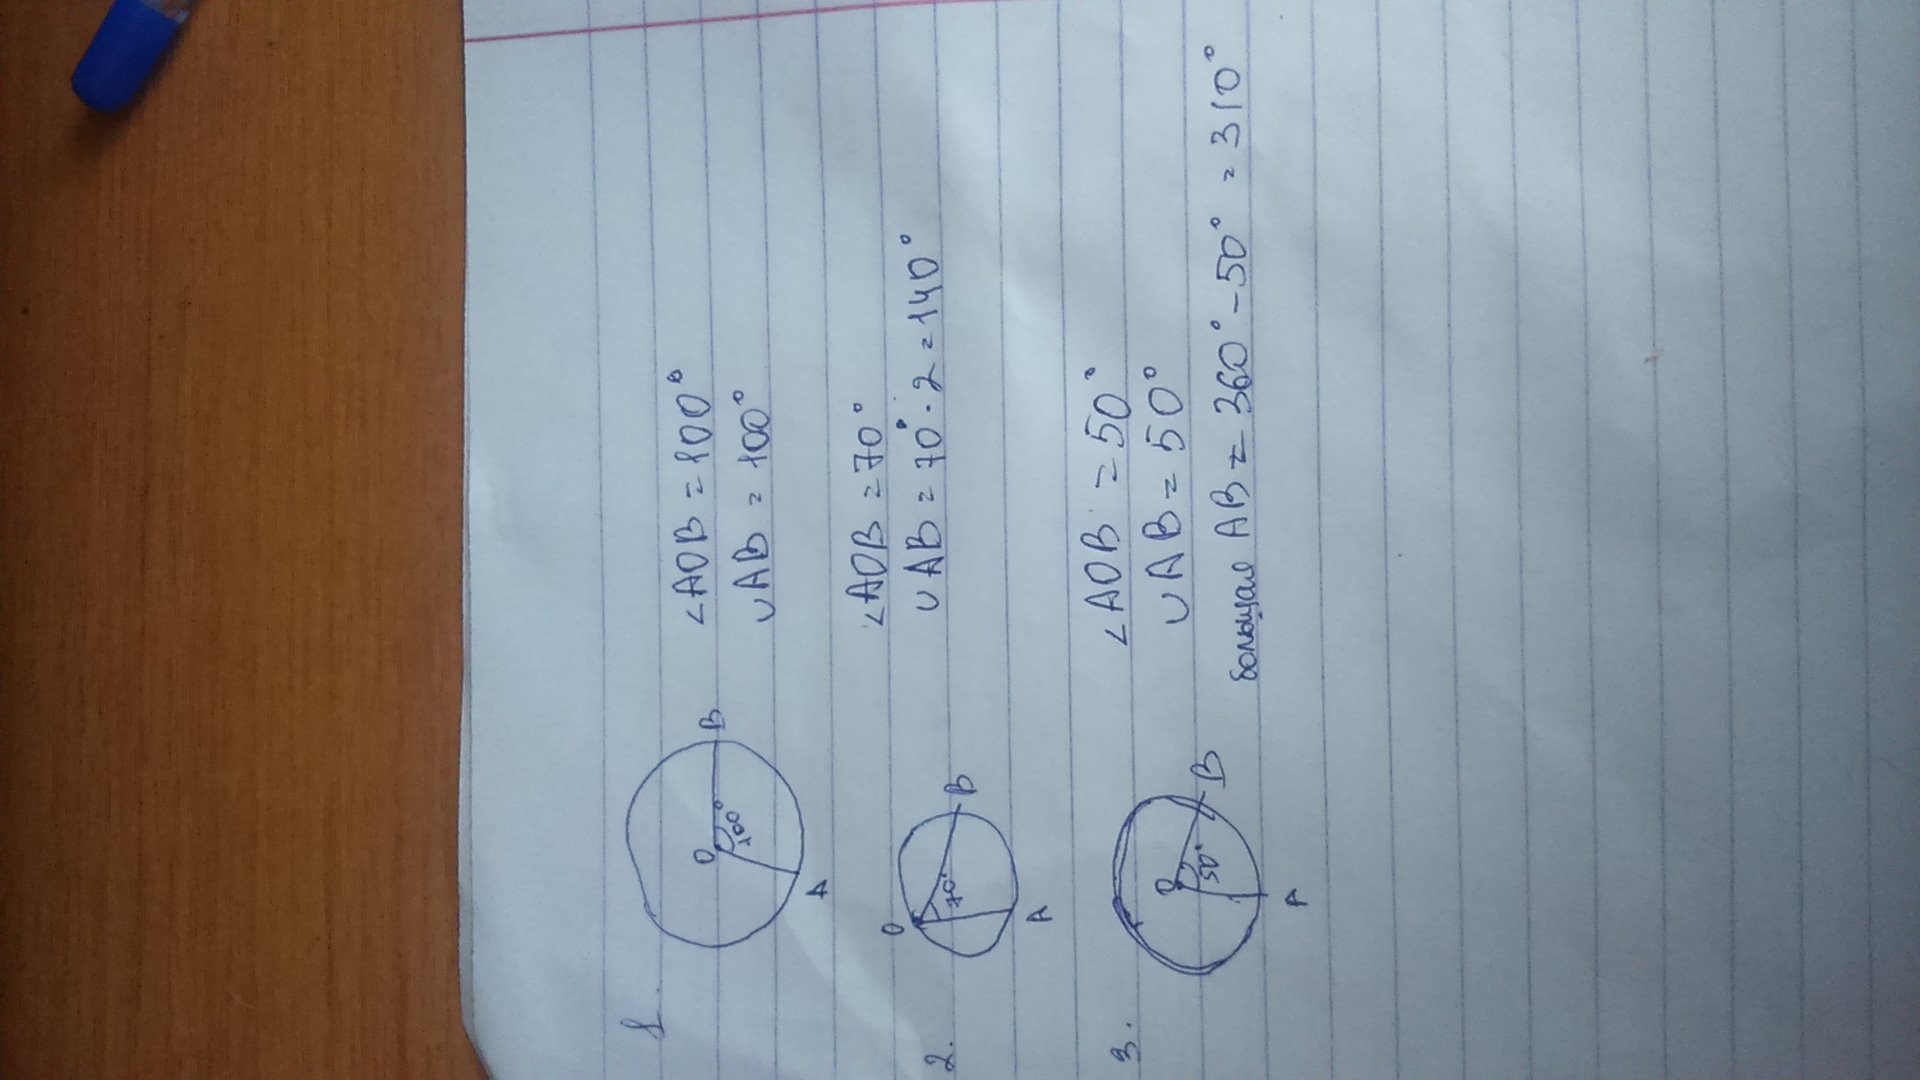 1.
O
100°
B
A
<AOB = 100°
∪AB = 100°
2.
O
70°
B
A
<AOB = 70°
∪AB = 70° · 2 = 140°
3.
O
50°
B
A
<AOB = 50°
∪AB = 50°
большая AB = 360° - 50° = 310°